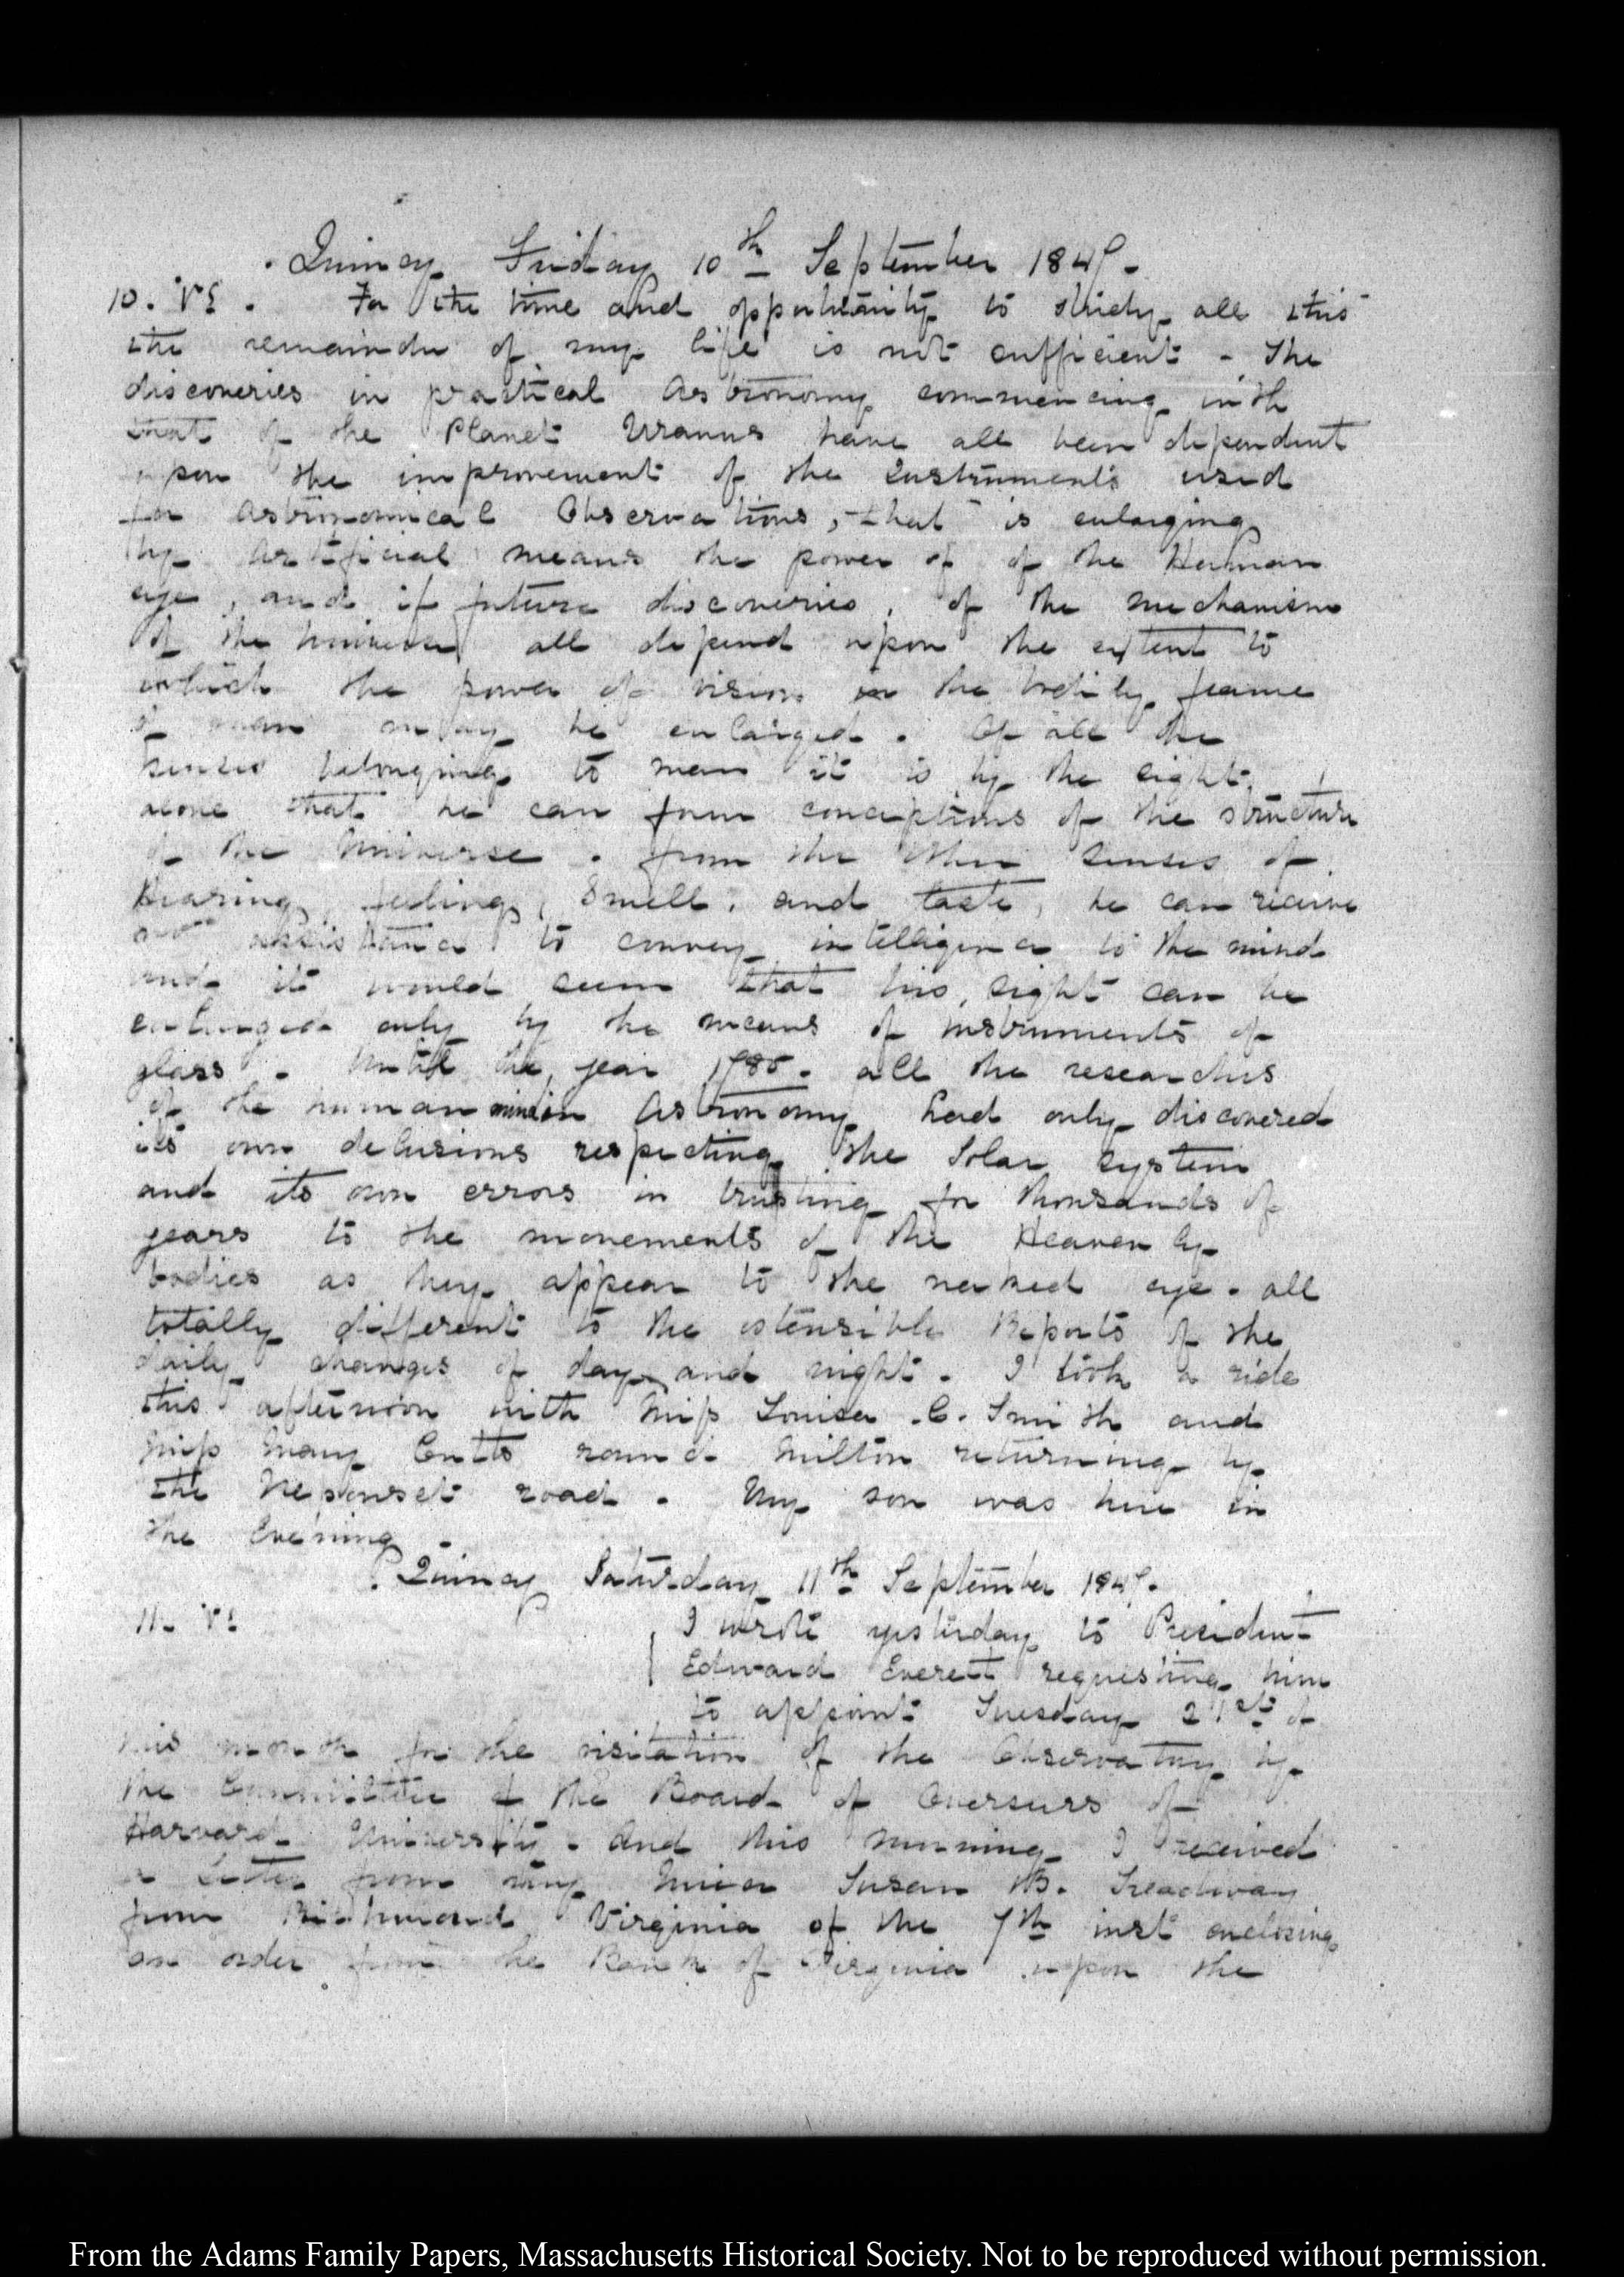 Quincy Friday 10th September 1847.
10. V:. For the time and opportunity to study all this
the remainder of my life is not sufficient - The
discoveries in practical Astronomy commencing with
that of the Planet Uranus have all been dependent
upon the improvement of the Instruments used
for Astronomical Observations, that is enlarging
by Artificial means the power of of the Human
eye, and if future discoveries, of the mechanism
of the Universe all depend upon the extent to
which the power of vision in the bodily frame
of man may be enlarged. Of all the
senses belonging to man it is by the sight
alone that he can form conceptions of the structure
of the Universe. from the other senses of
Hearing, feeling, Smell, and taste, he can receive
assistance to convey intelligence to the mind
and it would seem that his sight can be
enlarged only by the means of instruments of
glass. Until the year 1785. all the researches
of the human mind in Astronomy had only discovered
its own delusions respecting the Solar system
and its own errors in trusting for thousands of
years to the movements of the Heavenly
bodies as they appear to the naked eye. all
totally different to the ostensible Reports of the
daily changes of day and night. I took a ride
this afternoon with Miss Louisa C. Smith and
Miss Mary Cutts round Milton returning by
the Neponset road. My son was here in
the Evening.
Quincy Saturday 11th September 1847.
11. V: I wrote yesterday to President
Edward Everett requesting him
to appoint Tuesday 21st of
this month for the visitation of the Observatory by
the Committee of the Board of Overseers of
Harvard University. And this morning I received
a Letter from my Niece Susan B. Treadway
from Richmond Virginia of the 7th inst enclosing
an order from the Bank of Virginia upon the
From the Adams Family Papers, Massachusetts Historical Society. Not to be reproduced without permission.